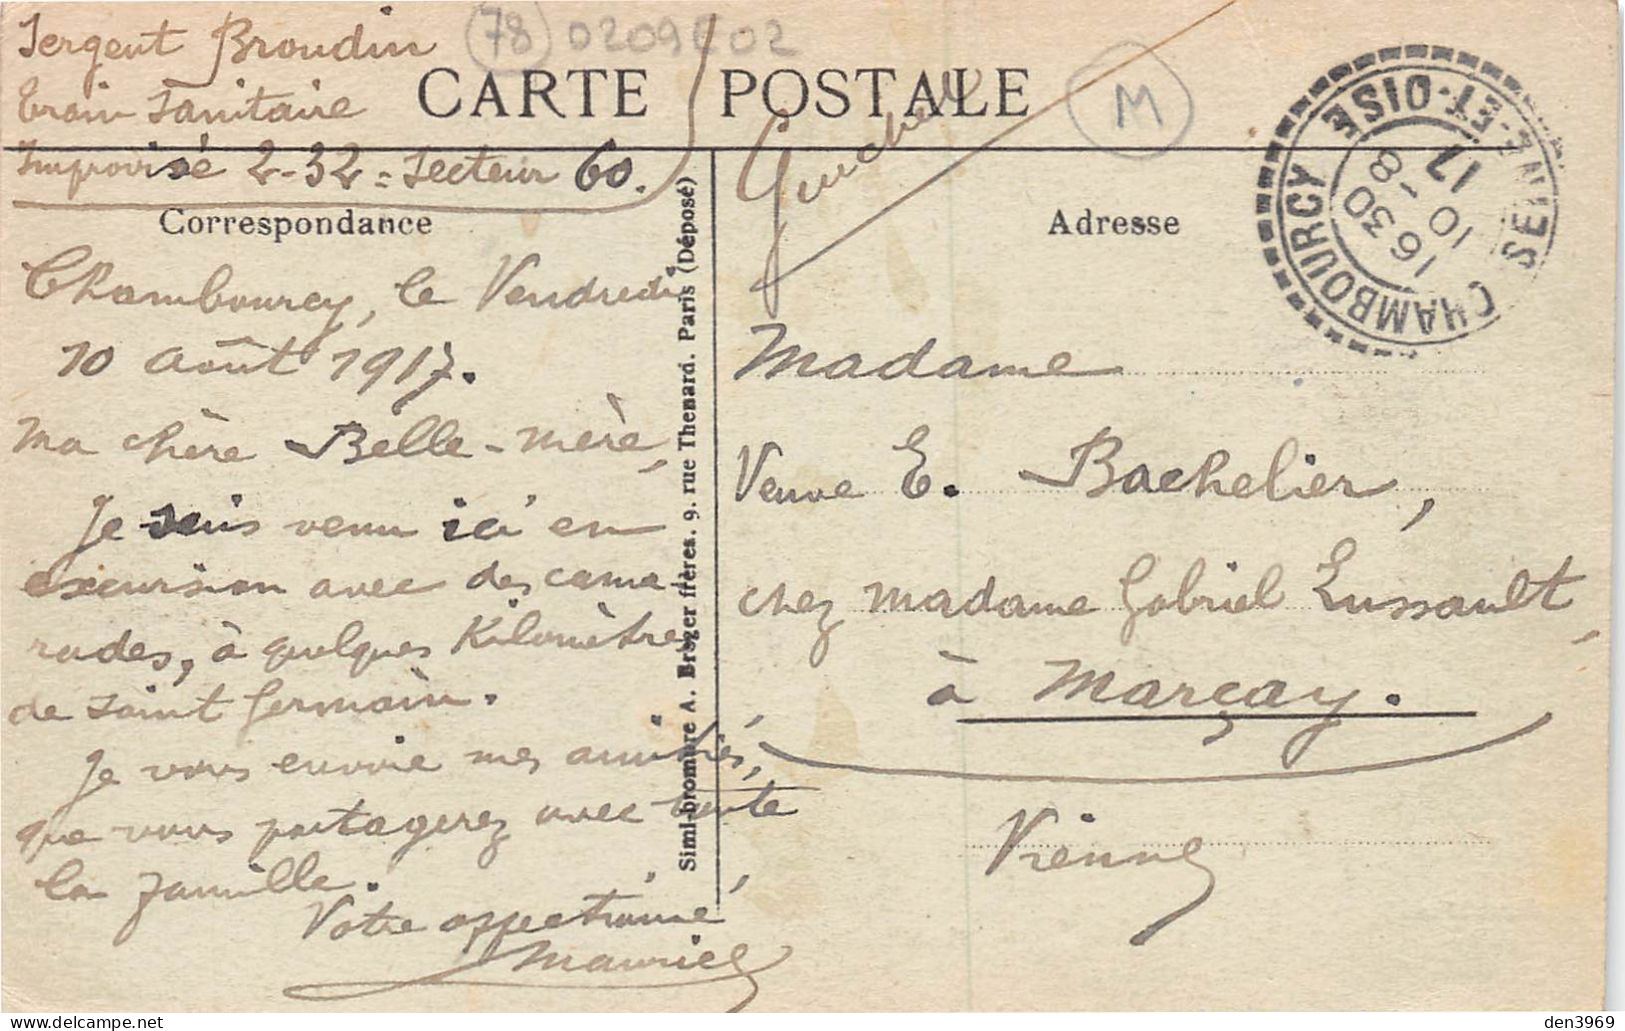 Sergent Broudin
Train Sanitaire
Improvisé 2-32 = Secteur 60.
78 0209 02
CARTE POSTALE
M
CHAMBOURCY
SEINE-ET-OISE
16 30
10 - 8
17
Correspondance
Adresse
Chambourcy, le Vendredi
10 Août 1917.
Ma chère Belle-mère,
Je suis venu ici en
excursion avec des cama-
rades, à quelques Kilomètres
de Saint Germain.
Je vous envoie mes amitiés,
que vous partagerez avec toute
la famille.
Votre affectionné,
Maurice
Simi-bromure A. Breger frères. 9. rue Thenard. Paris (Déposé)
Madame
Veuve E. Bachelier,
chez madame Gabriel Lussault,
à Marçay.
Vienne
den3969